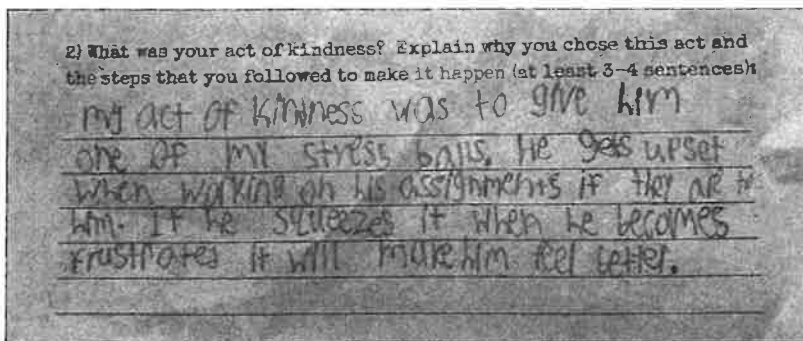 2) What was your act of kindness? Explain why you chose this act and
the steps that you followed to make it happen (at least 3-4 sentences):
my act of kindness was to give him
one of my stress balls. He gets upset
when working on his assignments if they are
him. If he squeezes it when he becomes
frustrated it will make him feel better.